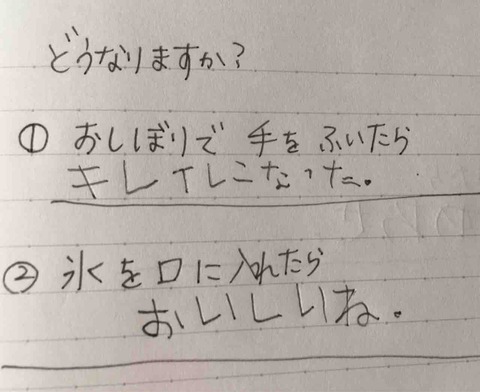 どうなりますか?
① おしぼりで 手を ふいたら
キレイになった。
② 氷を口に入れたら
おいしいね。